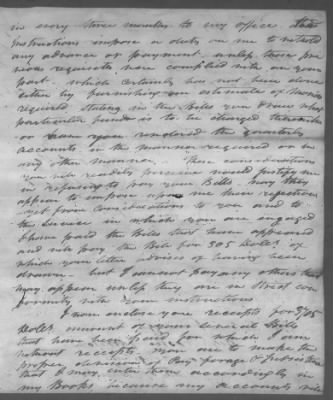 in every three months to my office these
Instructions impose a duty on me to withhold
any advance or payment unless those pre
vious requisites were complied with on your
part. which certainly has not been done
either by furnishing an estimate of monies
required stating in the Bills you draw what
particular fund is to be charged therewith
or have you rendered the quarterly
accounts in the manner required or in
any other manner. These considerations
you will readily perceive would justify me
in refusing to pay your Bills nay they
appear to impose upon me these directives
yet from considerations to you and to
the Service in which you are engaged
I have paid the Bills that have appeared
and will pay the Bill for 305 Dolls. of
which your letter advises of having been
drawn. but I cannot pay any others that
may appear unless they are in strict con
formity with your instructions
I now enclose you receipts for
Dolls. amount of your several Bills
that have been paid for which I am
without receipts you are to make the
proper distinction of Pay forage & Subsistence
that I may enter them accordingly in
my Books, because my accounts will